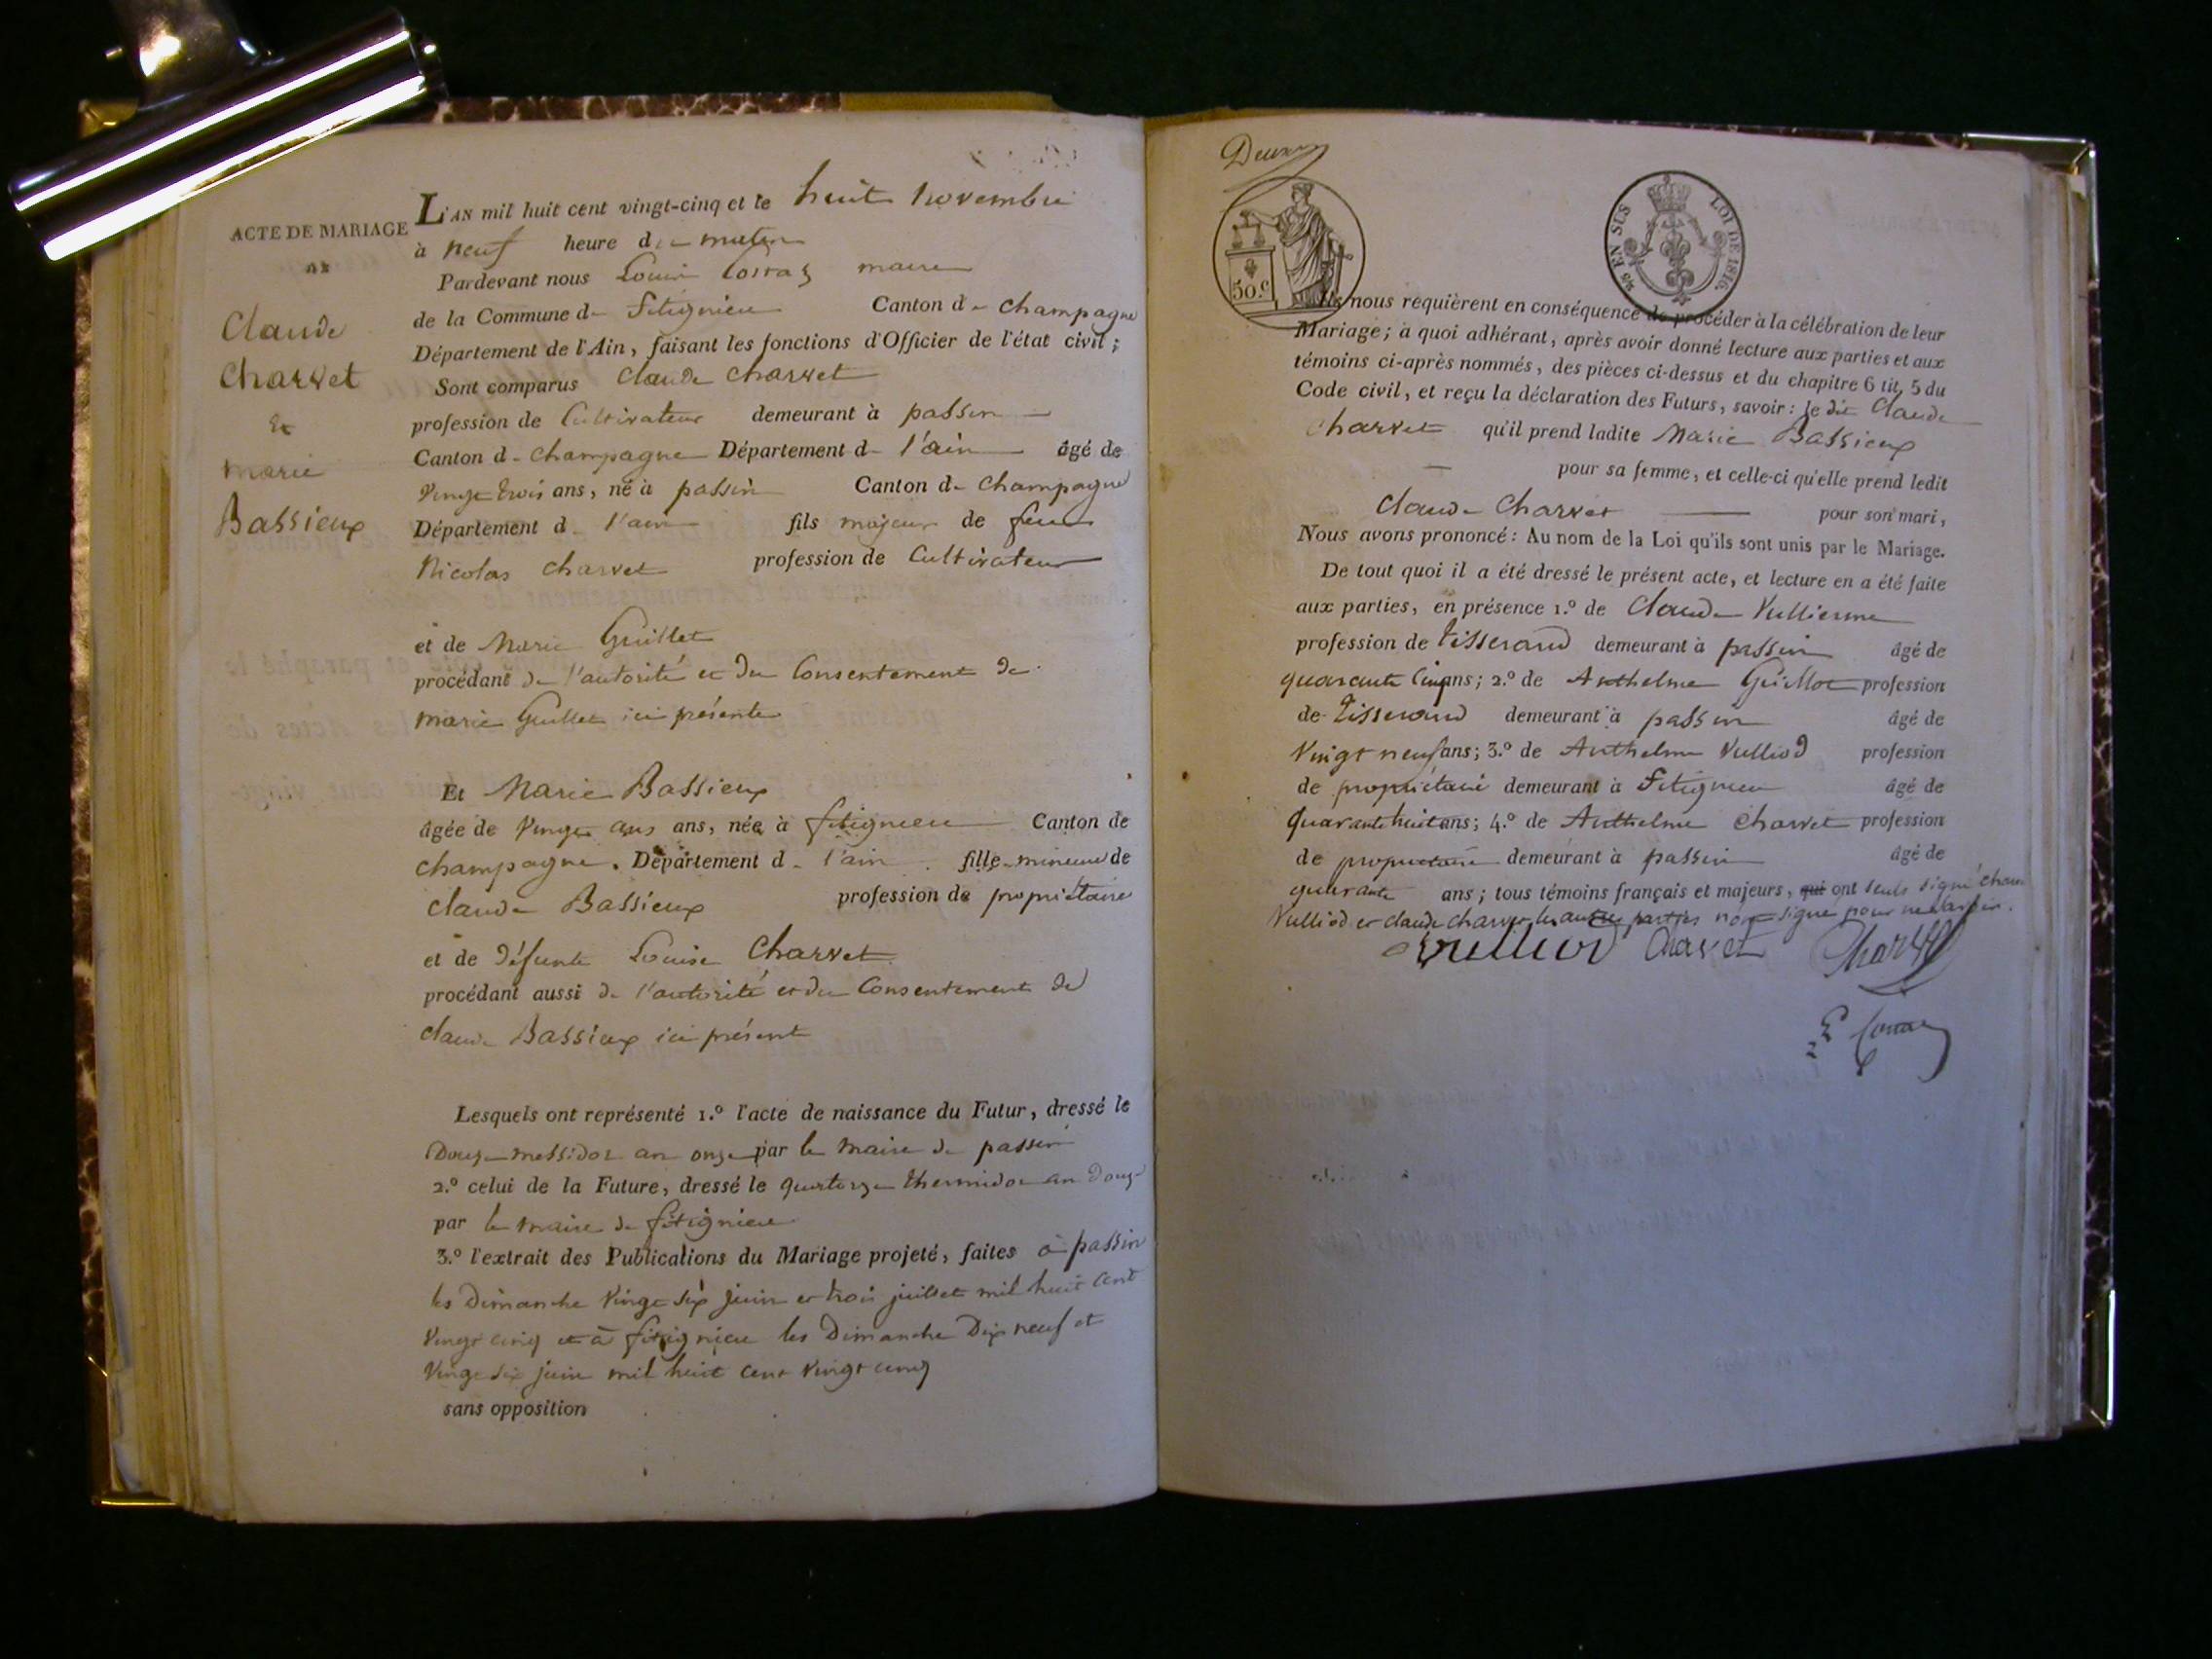 ACTE DE MARIAGE
DE
Claude
Charvet
Et
marie
Bassieux
L'AN mil huit cent vingt-cinq et le huit novembre
à neuf heure du matin
Pardevant nous Louis Costaz maire
de la Commune de Fitignieu Canton de champagne
Département de l'Ain, faisant les fonctions d'Officier de l'état civil;
Sont comparus Claude Charvet
profession de Cultivateur demeurant à passin
Canton de champagne Département de l'ain âgé de
Vingt trois ans, né à passin Canton de Champagne
Département de l'ain fils majeur de feu
Nicolas Charvet profession de Cultivateur
et de Marie Guillet
procédant de l'autorité et du Consentement de
marie Guillet ici présente
Et Marie Bassieux
âgée de Vingt ans, née à fitignieu Canton de
champagne. Département de l'ain fille mineure de
claude Bassieux profession de propriétaire
et de défunte Louise Charvet
procédant aussi de l'autorité et du Consentement de
claude Bassieux ici présent
Lesquels ont représenté 1.º l'acte de naissance du Futur, dressé le
Douze messidor an onze par le maire de passin
2.º celui de la Future, dressé le quatorze thermidor an Douze
par le maire de fitignieu
3.º l'extrait des Publications du Mariage projeté, faites à passin
les Dimanche Vingt six juin et trois juillet mil huit cent
Vingt cinq et à fitignieu les Dimanche Dix neuf et
Vingt six juin mil huit cent vingt cinq
sans opposition
Deux
50.c
25 EN SUS LOI DE 1816.
Ils nous requièrent en conséquence de procéder à la célébration de leur
Mariage; à quoi adhérant, après avoir donné lecture aux parties et aux
témoins ci-après nommés, des pièces ci-dessus et du chapitre 6 tit. 5 du
Code civil, et reçu la déclaration des Futurs, savoir: le dit Claude
Charvet qu'il prend ladite Marie Bassieux
pour sa femme, et celle-ci qu'elle prend ledit
Claude Charvet pour son mari,
Nous avons prononcé: Au nom de la Loi qu'ils sont unis par le Mariage.
De tout quoi il a été dressé le présent acte, et lecture en a été faite
aux parties, en présence 1.º de Claude Vullierme
profession de tisserand demeurant à passin âgé de
quarante Cinq ans; 2.º de Anthelme Guillot profession
de tisserand demeurant à passin âgé de
Vingt neuf ans; 3.º de Anthelme Vulliod profession
de propriétaire demeurant à Fitignieu âgé de
Quarante huit ans; 4.º de Anthelme Charvet profession
de propriétaire demeurant à passin âgé de
quarante ans; tous témoins français et majeurs, qui ont seuls signé
Vulliod et claude charvet les autres parties non signé pour ne savoir.
Vulliod Charvet Charvet